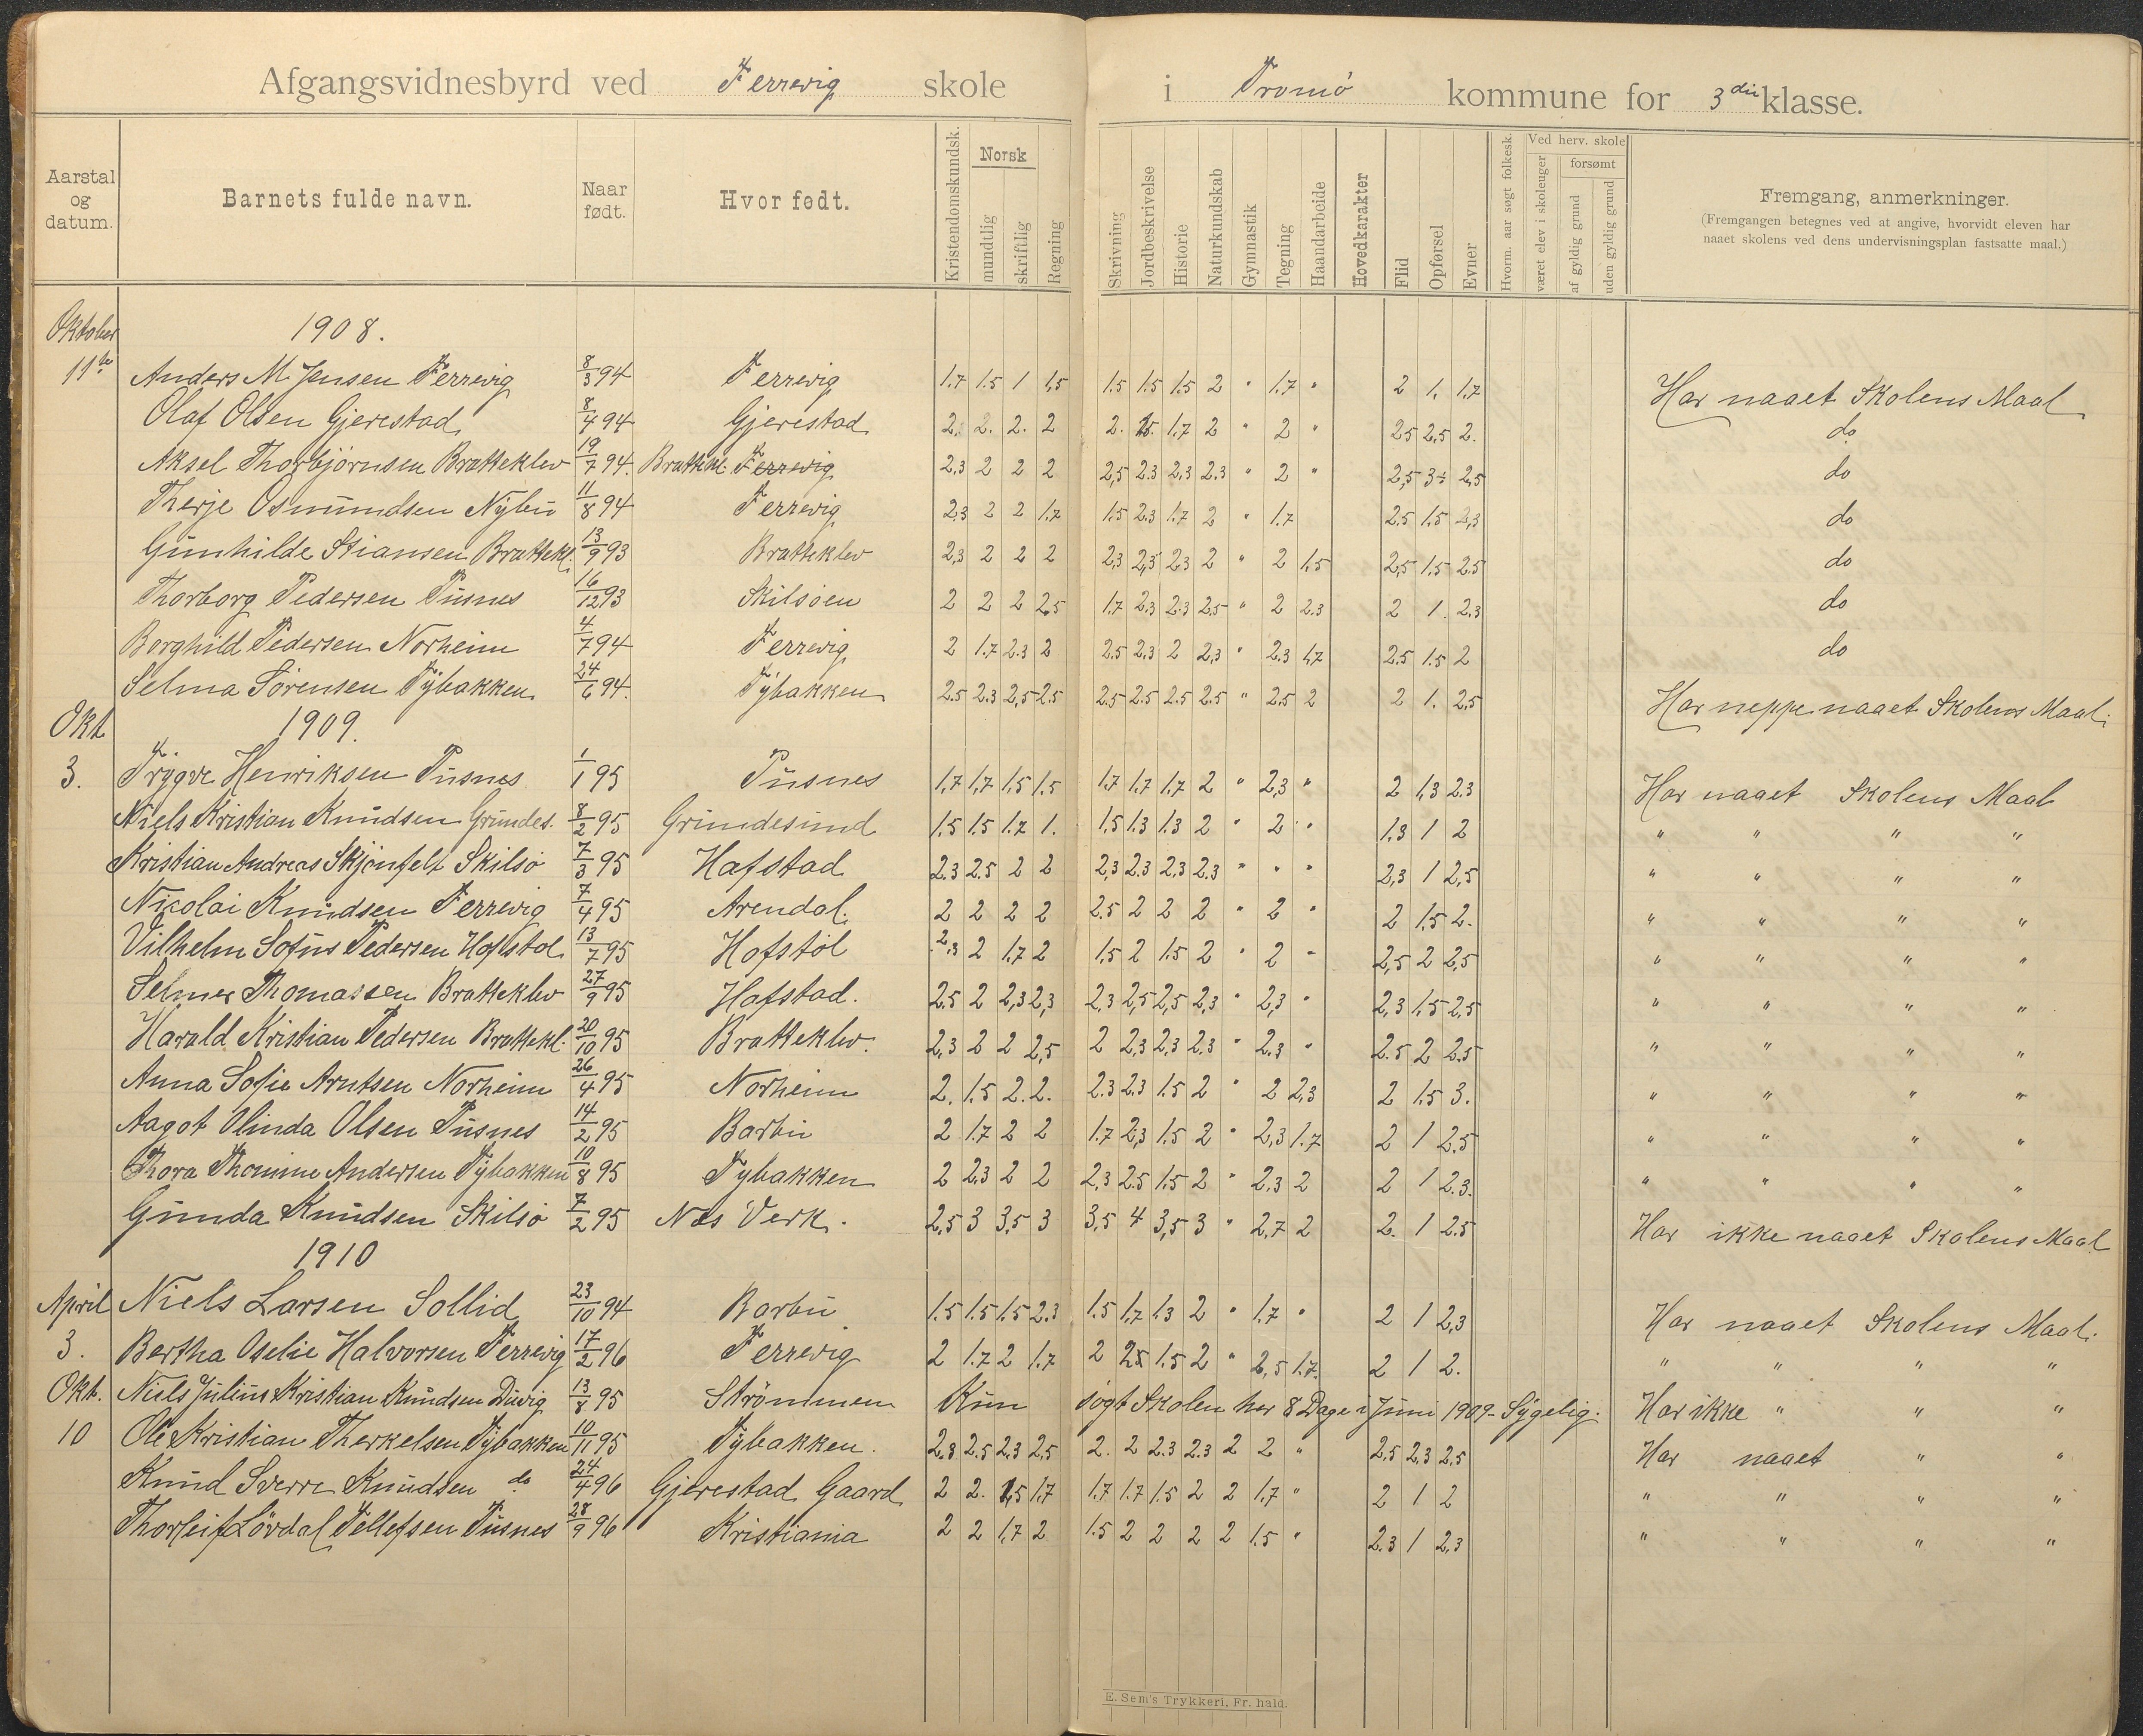 Afgangsvidnesbyrd ved Færrevig skole i Tromø kommune for 3die klasse.
Aarstal og datum. Barnets fulde navn. Naar født. Hvor født. Kristendomskundsk. Norsk mundtlig skriftlig Regning Skrivning Jordbeskrivelse Historie Naturkundskab Gymnastik Tegning Haandarbeide Hovedkarakter Flid Opførsel Evner Hvorm. aar søgt folkesk. Ved herv. skole været elev i skoleuger forsømt af gyldig grund uden gyldig grund Fremgang, anmerkninger.
(Fremgangen betegnes ved at angive, hvorvidt eleven har
naaet skolens ved dens undervisningsplan fastsatte maal.)
Oktober 1908.
11te Anders M. Jensen Færrevig 8/3 94 Færrevig 1.7 1.5 1 1,5 1.5 1.5 1.5 2 " 1.7 " 2 1. 1.7 Har naaet Skolens Maal
Olaf Olsen Gjerestad 8/4 94 Gjerestad 2. 2. 2. 2 2. 1.5. 1.7 2 " 2 " 2.5 2.5 2. do
Aksel Thorbjørnsen Bratteklev 19/7 94. Brattekl. Færrevig 2,3 2 2 2 2,5 2.3 2,3 2.3 " 2 " 2,5 3÷ 2,5 do
Therje Osmundsen Nybu 11/8 94 Færrevig 2,3 2 2 1.7 1.5 2.3 1.7 2 " 1.7 2.5 1.5 2,3 do
Gunhilde Stiansen Brattekl. 13/9 93 Bratteklev 2,3 2 2 2 2,3 2,5 2,3 2 " 2 1.5 2,5 1.5 2.5 do
Thorborg Pedersen Pusnes 16/12 93 Skilsøen 2 2 2 2,5 1.7 2.3 2.3 2.5 " 2 2.3 2 1. 2,3 do
Borghild Pedersen Norheim 4/7 94 Færrevig 2 1.7 2.3 2 2.5 2,3 2 2,3 " 2,3 1,7 2.5 1.5 2 do
Selma Sørensen Tybakken 24/6 94. Tybakken 2.5 2.3 2,5 2.5 2.5 2.5 2.5 2.5 " 2.5 2 2 1. 2,5 Har neppe naaet Skolens Maal.
Okt. 1909.
3. Trygve Henriksen Pusnes 1/1 95 Pusnes 1,7 1,7 1,5 1.5 1.7 1.7 1.7 2 " 2,3 " 2 1,3 2.3 Har naaet Skolens Maal
Niels Kristian Knudsen Grundes. 8/2 95 Grundesund 1.5 1.5 1.7 1. 1.5 1.3 1.3 2 " 2 " 1,3 1 2 " " " "
Kristian Andreas Skjønfelt Skilsø 7/3 95 Hafstad 2.3 2.5 2 2 2,3 2.3 2.3 2.3 " " " 2,3 1 2,5 " " " "
Nicolai Knudsen Færrevig 7/4 95 Arendal. 2 2 2 2 2.5 2 2 2 " 2 " 2 1.5 2. " " " "
Vilhelm Sofus Pedersen Hofstøl 13/7 95 Hofstøl 2,3 2 1.7 2 1.5 2 1.5 2 " 2 " 2,5 2 2,5 " " " "
Selmer Thomassen Bratteklev 27/9 95 Hafstad. 2.5 2 2,3 2,3 2,3 2,5 2,5 2,3 " 2,3 " 2,3 1.5 2,5 " " " "
Harald Kristian Pedersen Brattekl. 20/10 95 Bratteklev. 2,3 2 2 2,5 2 2,3 2,3 2.3 " 2.3 " 2.5 2 2.5 " " " "
Anna Sofie Arntsen Norheim 26/4 95 Norheim 2. 1.5 2. 2. 2.3 2.3 1.5 2 " 2 2,3 2 1.5 3. " " " "
Aagot Olinda Olsen Pusnes 14/2 95 Barbu 2 1.7 2 2 1.7 2,3 1.5 2 " 2,3 1.7 2 1 2.5 " " " "
Thora Thomine Andersen Tybakken 10/8 95 Tybakken 2 2.3 2 2 2,3 2.5 1.5 2 " 2.3 2 2 1 2.3. " " " "
Gunda Knudsen Skilsø 7/2 95 Næs Verk. 2,5 3 3,5 3 3,5 4 3,5 3 " 2,7 2 2. 1 2.5 Har ikke naaet Skolens Maal
1910
April Niels Larsen Sollid 23/10 94 Barbu 1.5 1.5 1.5 2.3 1.5 1,7 1.3 2 " 1,7 " 2 1 2,3 Har naaet Skolens Maal.
3. Bertha Oselie Halvorsen Færrevig 17/2 96 Færrevig 2 1.7 2 1.7 2 2.5 1.5 2 " 2,5 1.7. 2 1 2. " " " "
Okt. Niels Julius Kristian Knudsen Duvig 13/8 95 Strømmen Kun søgt Skolen her 8 Dage i Juni 1909 - Sygelig. Har ikke " " "
10 Ole Kristian Therkelsen Tybakken 10/11 95 Tybakken. 2.3 2.5 2.3 2,5 2. 2 2.3 2.3 2 2 " 2.5 2.3 2.5 Har naaet " "
Knud Sverre Knudsen do 24/4 96 Gjerestad Gaard 2 2. 1,5 1.7 1.7 1.7 1.5 2 2 1.7 " 2 1 2 " " " "
Thorleif Løvdal Tellefsen Pusnes 28/9 96 Kristiania 2 2 1,7 2 1.5 2 2 2 2 1.5 " 2.3 1 2,3 " " " "
E. Sem's Trykkeri, Fr. hald.